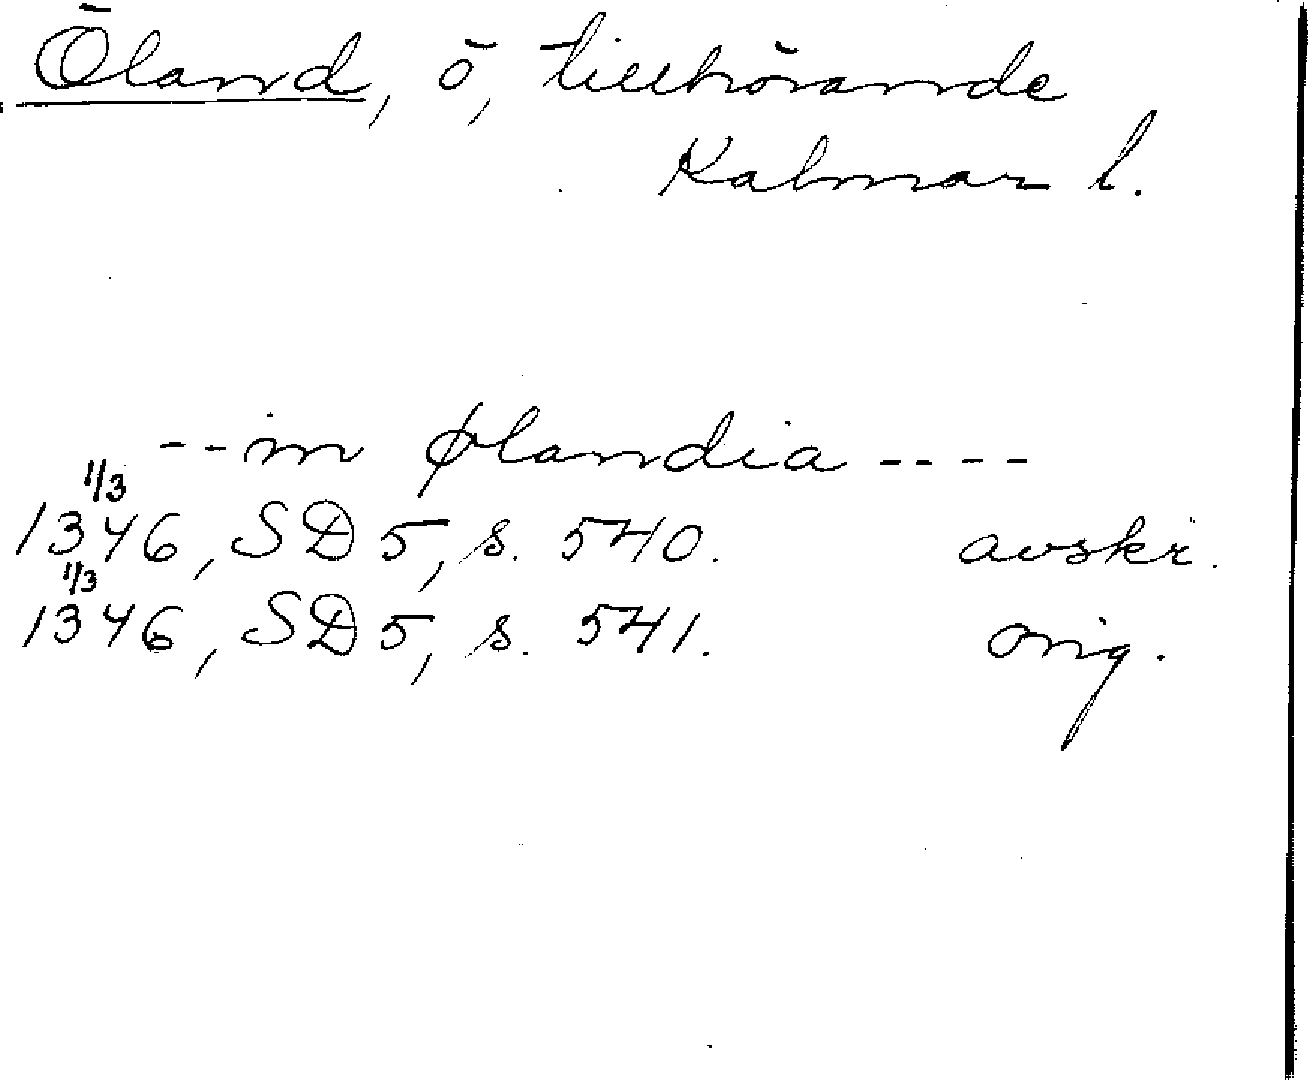 Öland, ö, tillhörande
Kalmar l.
--in ølandia ----
1/3
1346, SD 5, s. 540. avskr.
1/3
1346, SD 5, s. 541. orig.